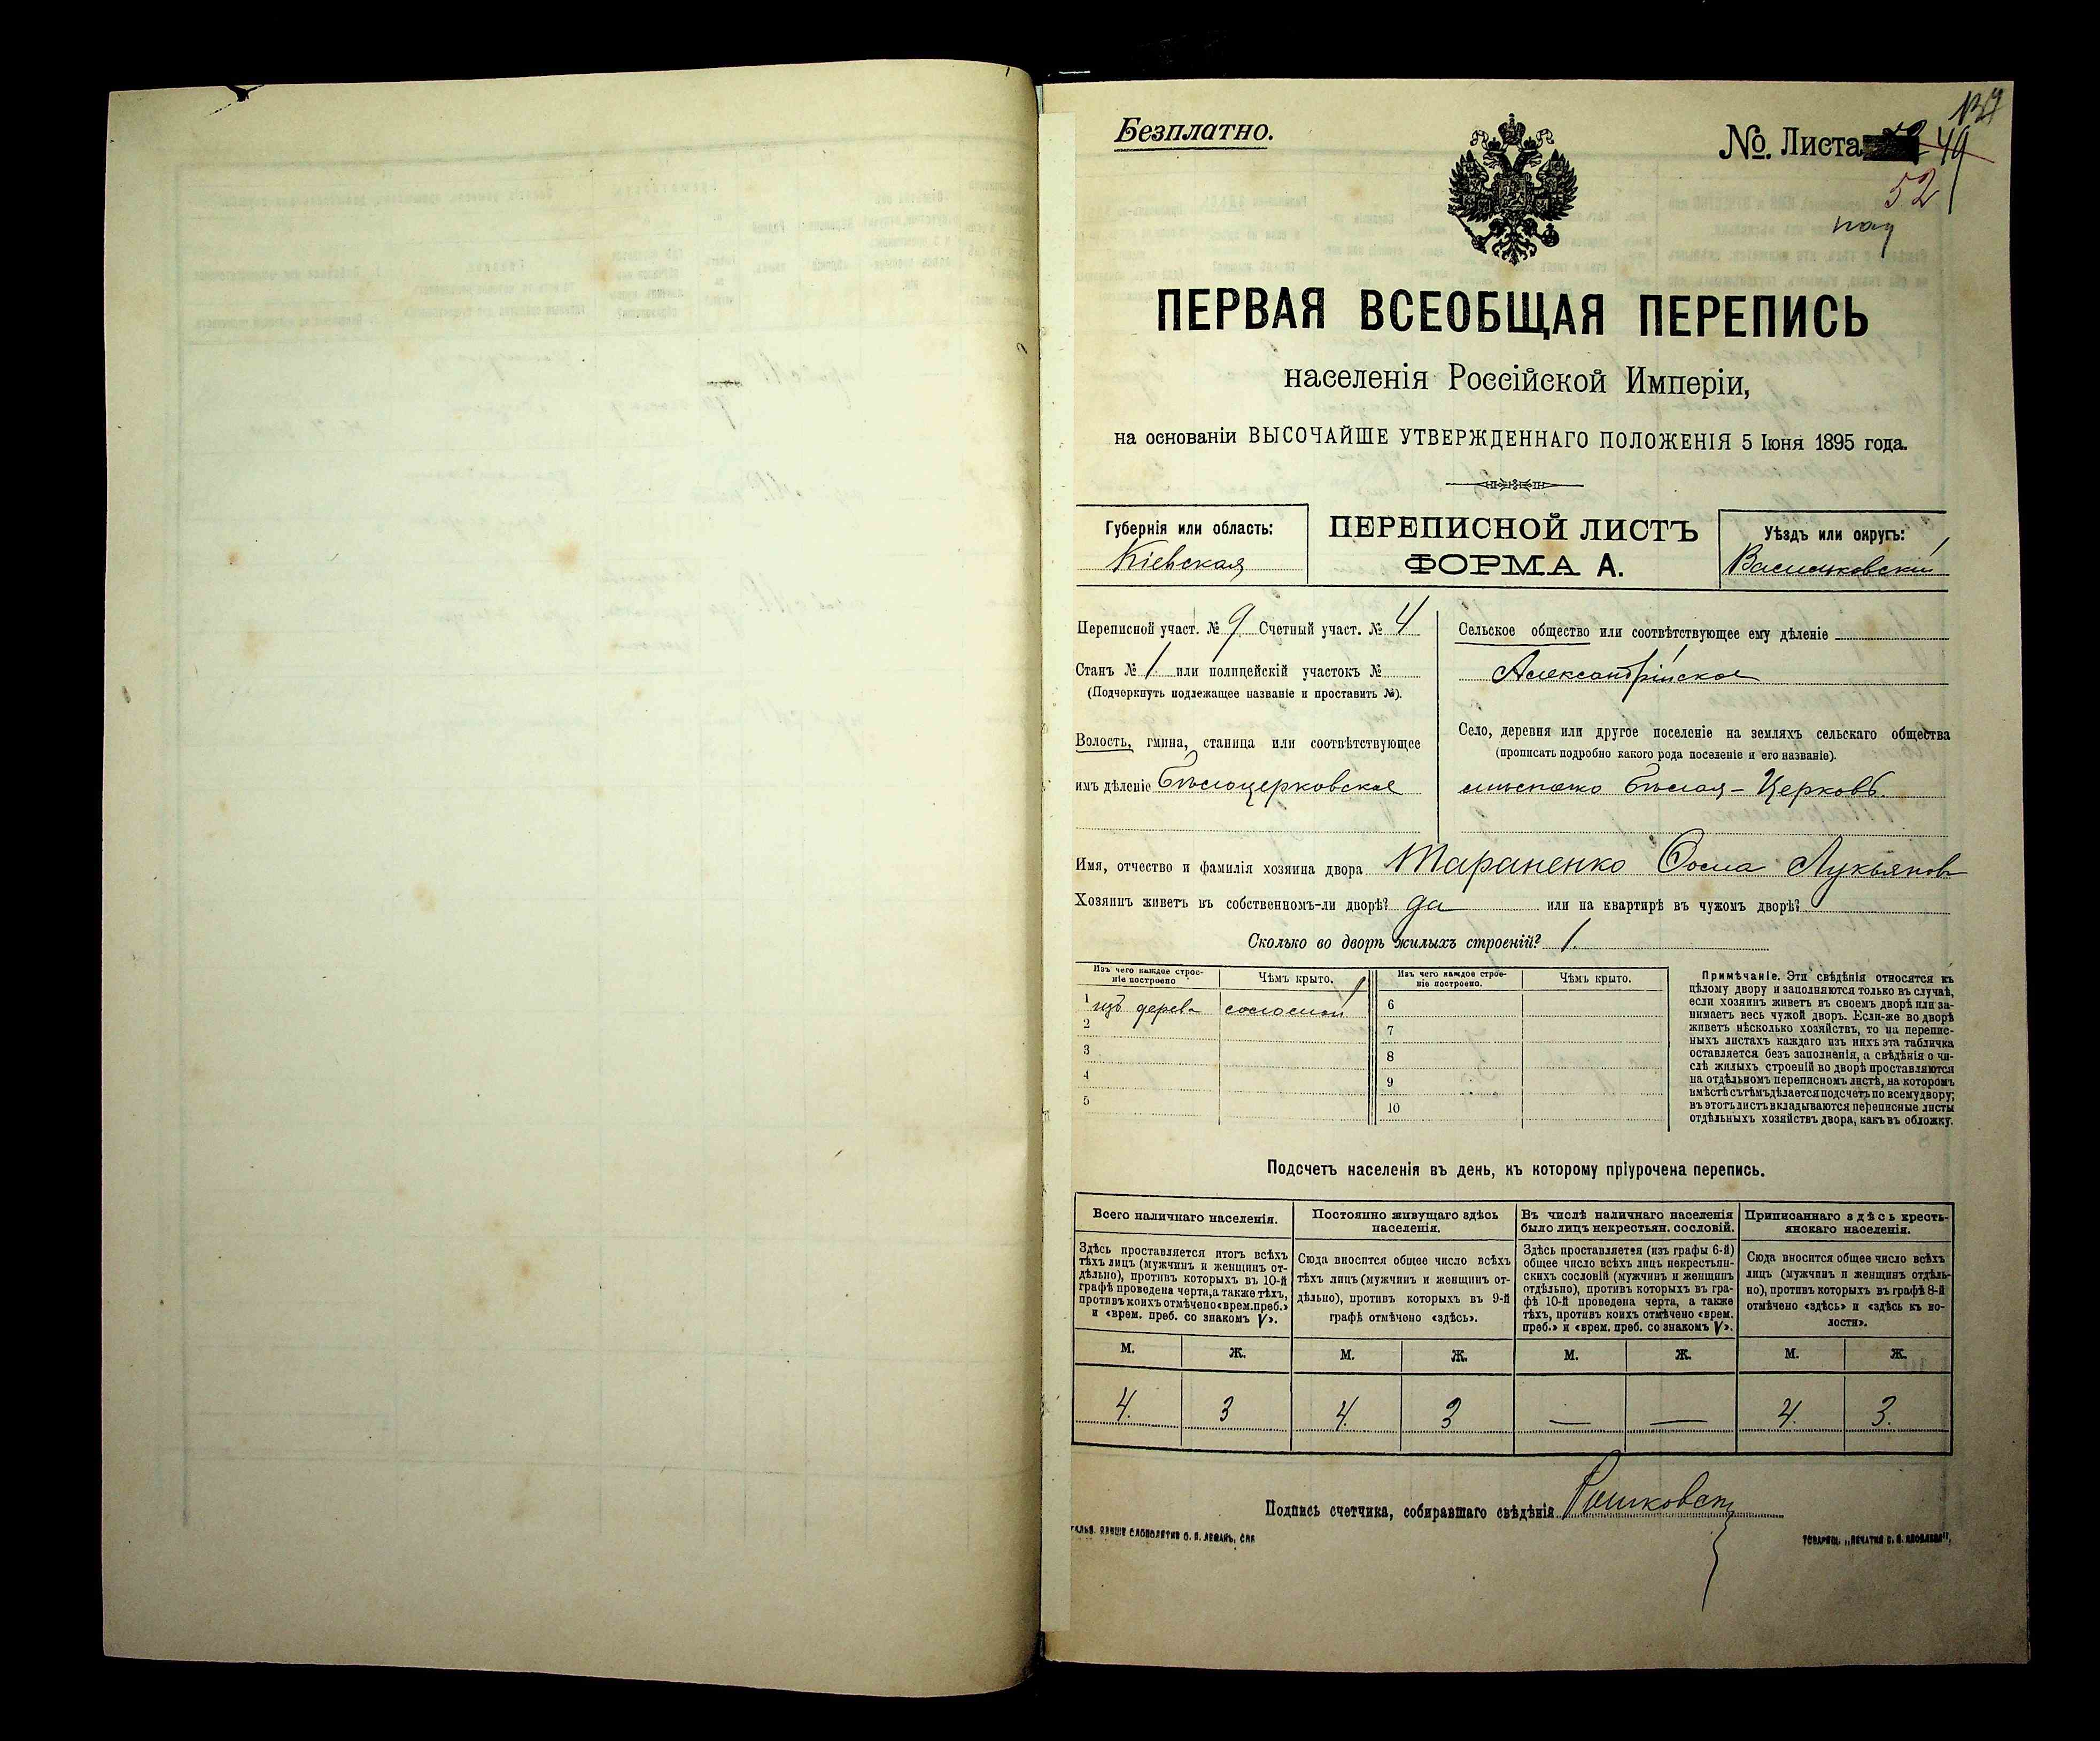 Безплатно.
№. Листа 49
52
ПЕРВАЯ ВСЕОБЩАЯ ПЕРЕПИСЬ
населенія Россійской Имперіи,
на основаніи ВЫСОЧАЙШЕ УТВЕРЖДЕННАГО ПОЛОЖЕНІЯ 5 Іюня 1895 года.
Губернія или область:
Кіевская
ПЕРЕПИСНОЙ ЛИСТЪ
ФОРМА А.
Уѣздъ или округъ:
Васильковскій
Переписной участ. № 9 Счетный участ. № 4
Станъ № 1 или полицейскій участокъ №
(Подчеркнуть подлежащее названіе и проставить №).
Волость, гмина, станица или соотвѣтствующее
имъ дѣленіе Бѣлоцерковская
Сельское общество или соотвѣтствующее ему дѣленіе
Александрійское
Село, деревня или другое поселеніе на земляхъ сельскаго общества
(прописать подробно какого рода поселеніе и его названіе).
мѣстечко Бѣлая-Церковь.
Имя, отчество и фамилія хозяина двора Тараненко Ѳома Лукьянов
Хозяинъ живетъ въ собственномъ-ли дворѣ? да или на квартирѣ въ чужомъ дворѣ?
Сколько во дворѣ жилыхъ строеній? 1.
Изъ чего каждое строе-
ніе построено
Чѣмъ крыто.
Изъ чего каждое строе-
ніе построено.
Чѣмъ крыто.
1 изъ дерева соломой
2
3
4
5
6
7
8
9
10
Примѣчаніе. Эти свѣдѣнія относятся къ
цѣлому двору и заполняются только въ случаѣ,
если хозяинъ живетъ въ своемъ дворѣ или за-
нимаетъ весь чужой дворъ. Если-же во дворѣ
живетъ нѣсколько хозяйствъ, то на перепис-
ныхъ листахъ каждаго изъ нихъ эта табличка
оставляется безъ заполненія, а свѣдѣнія о чи-
слѣ жилыхъ строеній во дворѣ проставляются
на отдѣльномъ переписномъ листѣ, на которомъ
вмѣстѣ съ тѣмъ дѣлается подсчетъ по всему двору;
въ этотъ листъ вкладываются переписные листы
отдѣльныхъ хозяйствъ двора, какъ въ обложку.
Подсчетъ населенія въ день, къ которому пріурочена перепись.
Всего наличнаго населенія.
Здѣсь проставляется итогъ всѣхъ
тѣхъ лицъ (мужчинъ и женщинъ от-
дѣльно), противъ которыхъ въ 10-й
графѣ проведена черта, а также тѣхъ,
противъ коихъ отмѣчено «врем. преб.»
и «врем. преб. со знакомъ V».
Постоянно живущаго здѣсь
населенія.
Сюда вносится общее число всѣхъ
тѣхъ лицъ (мужчинъ и женщинъ от-
дѣльно), противъ которыхъ въ 9-й
графѣ отмѣчено «здѣсь».
Въ числѣ наличнаго населенія
было лицъ некрестьян. сословій.
Здѣсь проставляется (изъ графы 6-й)
общее число всѣхъ лицъ некрестьян-
скихъ сословій (мужчинъ и женщинъ
отдѣльно), противъ которыхъ въ гра-
фѣ 10-й проведена черта, а также
тѣхъ, противъ коихъ отмѣчено «врем.
преб.» и «врем. преб. со знакомъ V».
Приписаннаго здѣсь кресть-
янскаго населенія.
Сюда вносится общее число всѣхъ
лицъ (мужчинъ и женщинъ отдѣль-
но), противъ которыхъ въ графѣ 8-й
отмѣчено «здѣсь» и «здѣсь къ во-
лости».
М. Ж. М. Ж. М. Ж. М. Ж.
4. 3 4. 3 — — 4. 3.
Подпись счетчика, собиравшаго свѣдѣнія